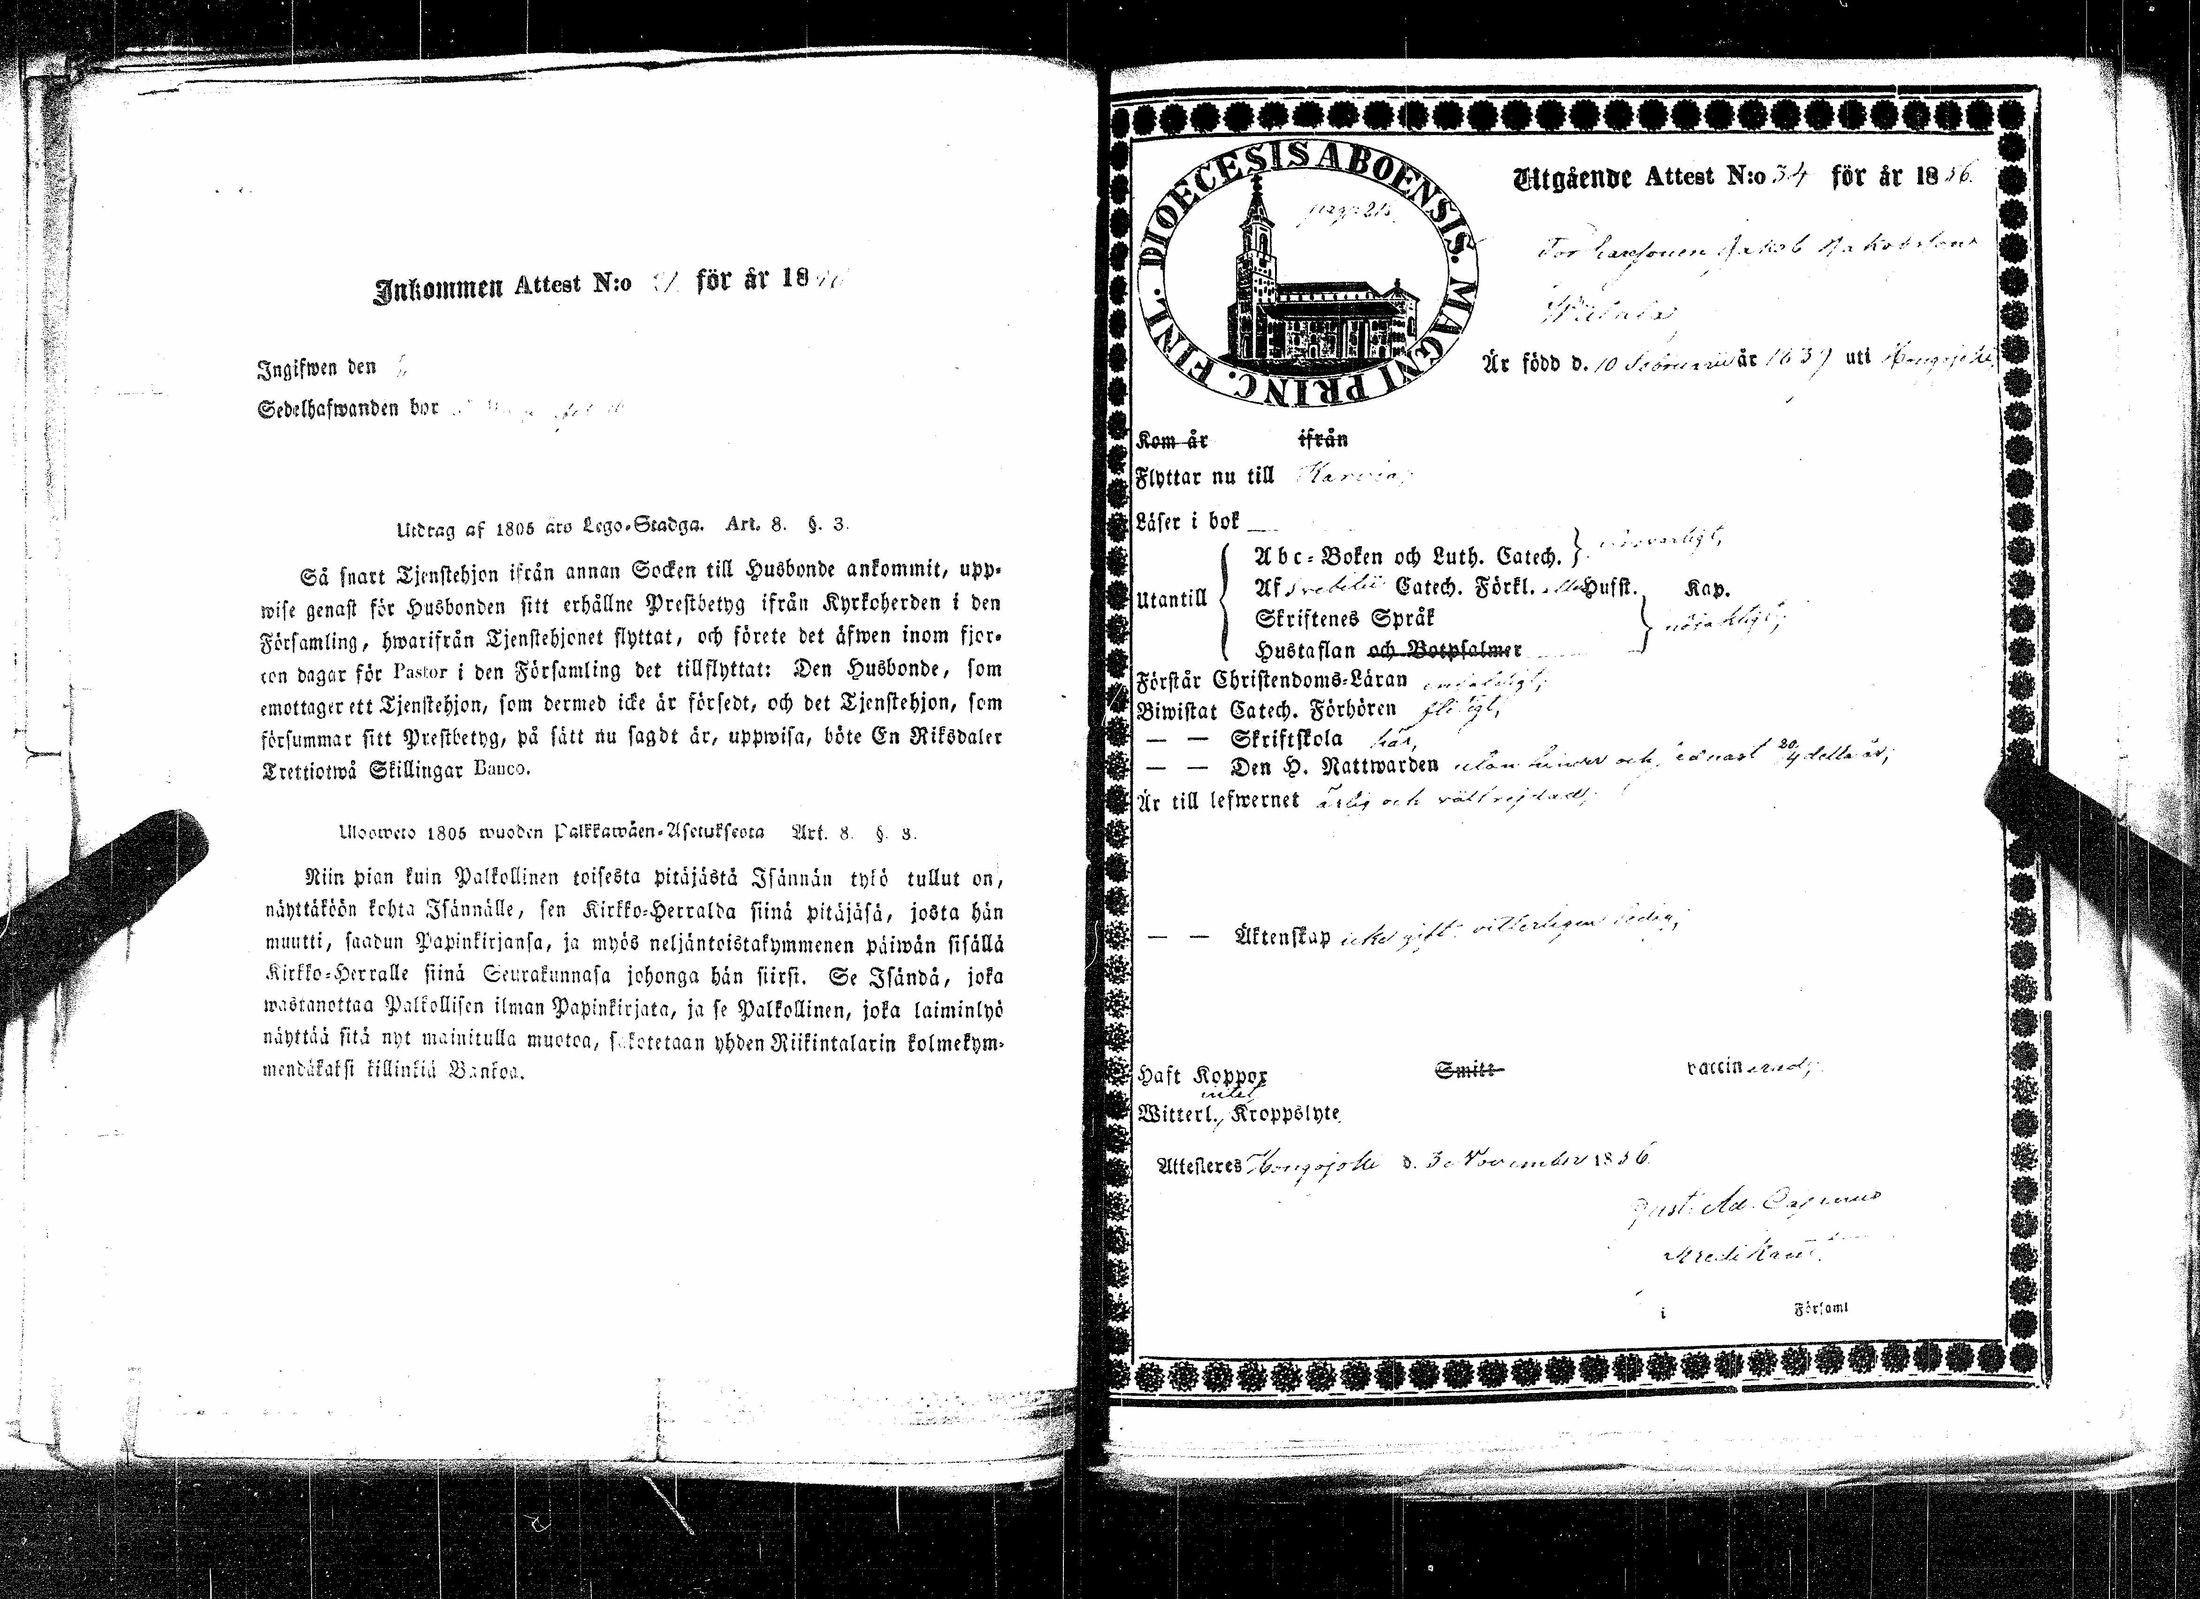 Inkommen Attest N:o för år 18
Ingifwen den
Sedelhafwanden bor
Utdrag af 1805 års Lego-Stadga. Art. 8. §. 3.
Så snart Tjenstehjon ifrån annan Socken till Husbonde ankommit, upp-
wise genast för Husbonden sitt erhållne Prestbetyg ifrån Kyrkoherden i den
Församling, hwarifrån Tjenstehjonet flyttat, och förete det äfwen inom fjor-
ton dagar för Pastor i den Församling det tillflyttat: Den Husbonde, som
emottager ett Tjenstehjon, som dermed icke är försedt, och det Tjenstehjon, som
försummar sitt Prestbetyg, på sätt nu sagdt är, uppwisa, böte En Riksdaler
Trettiotwå Skillingar Banco.
Ulosweto 1805 wuoden Palkkawäen-Asetuksesta Art. 8. §. 3.
Niin pian kuin Palkollinen toisesta pitäjästä Isännän tykö tullut on,
näyttäköön kohta Isännälle, sen Kirkko-Herralda siinä pitäjäsä, josta hän
muutti, saadun Papinkirjansa, ja myös neljäntoistakymmenen päiwän sisällä
Kirkko-Herralle siinä Seurakunnasa johonga hän siirsi. Se Isändä, joka
wastanottaa Palkollisen ilman Papinkirjata, ja se Palkollinen, joka laiminlyö
näyttää sitä nyt mainitulla muotoa, sakotetaan yhden Riikintalarin kolmekym-
mendäkaksi killinkiä Bankoa.
DIOECESIS ABOENSIS. MAGNI PRINC. FINL.
Utgående Attest N:o 34 för år 1856.
Jakob Jakobsson
Är född d. 10 Februarii år 1837 uti Hongojoki
Kom år ifrån
Flyttar nu till Karvia,
Läser i bok
Abc-Boken och Luth. Catech.
Utantill
Af Svebelii Catech. Förkl. Husst. Kap.
Skriftenes Språk
Hustaflan och Botpsalmer
Förstår Christendoms-Läran
Biwistat Catech. Förhören flitigt,
— — Skriftskola här,
— — Den H. Nattwarden utan hinder och senast 20/4 detta år;
Är till lefwernet ärlig och välfrejdad;
— — Äktenskap icke gift vitterligen ledig;
Haft Koppor Smitt vaccinerad;
intet
Witterl. Kroppslyte
Attesteres Hongojoki d. 3 November 1856.
Gust. Ad. Cajanus
Predikant.
i Församl